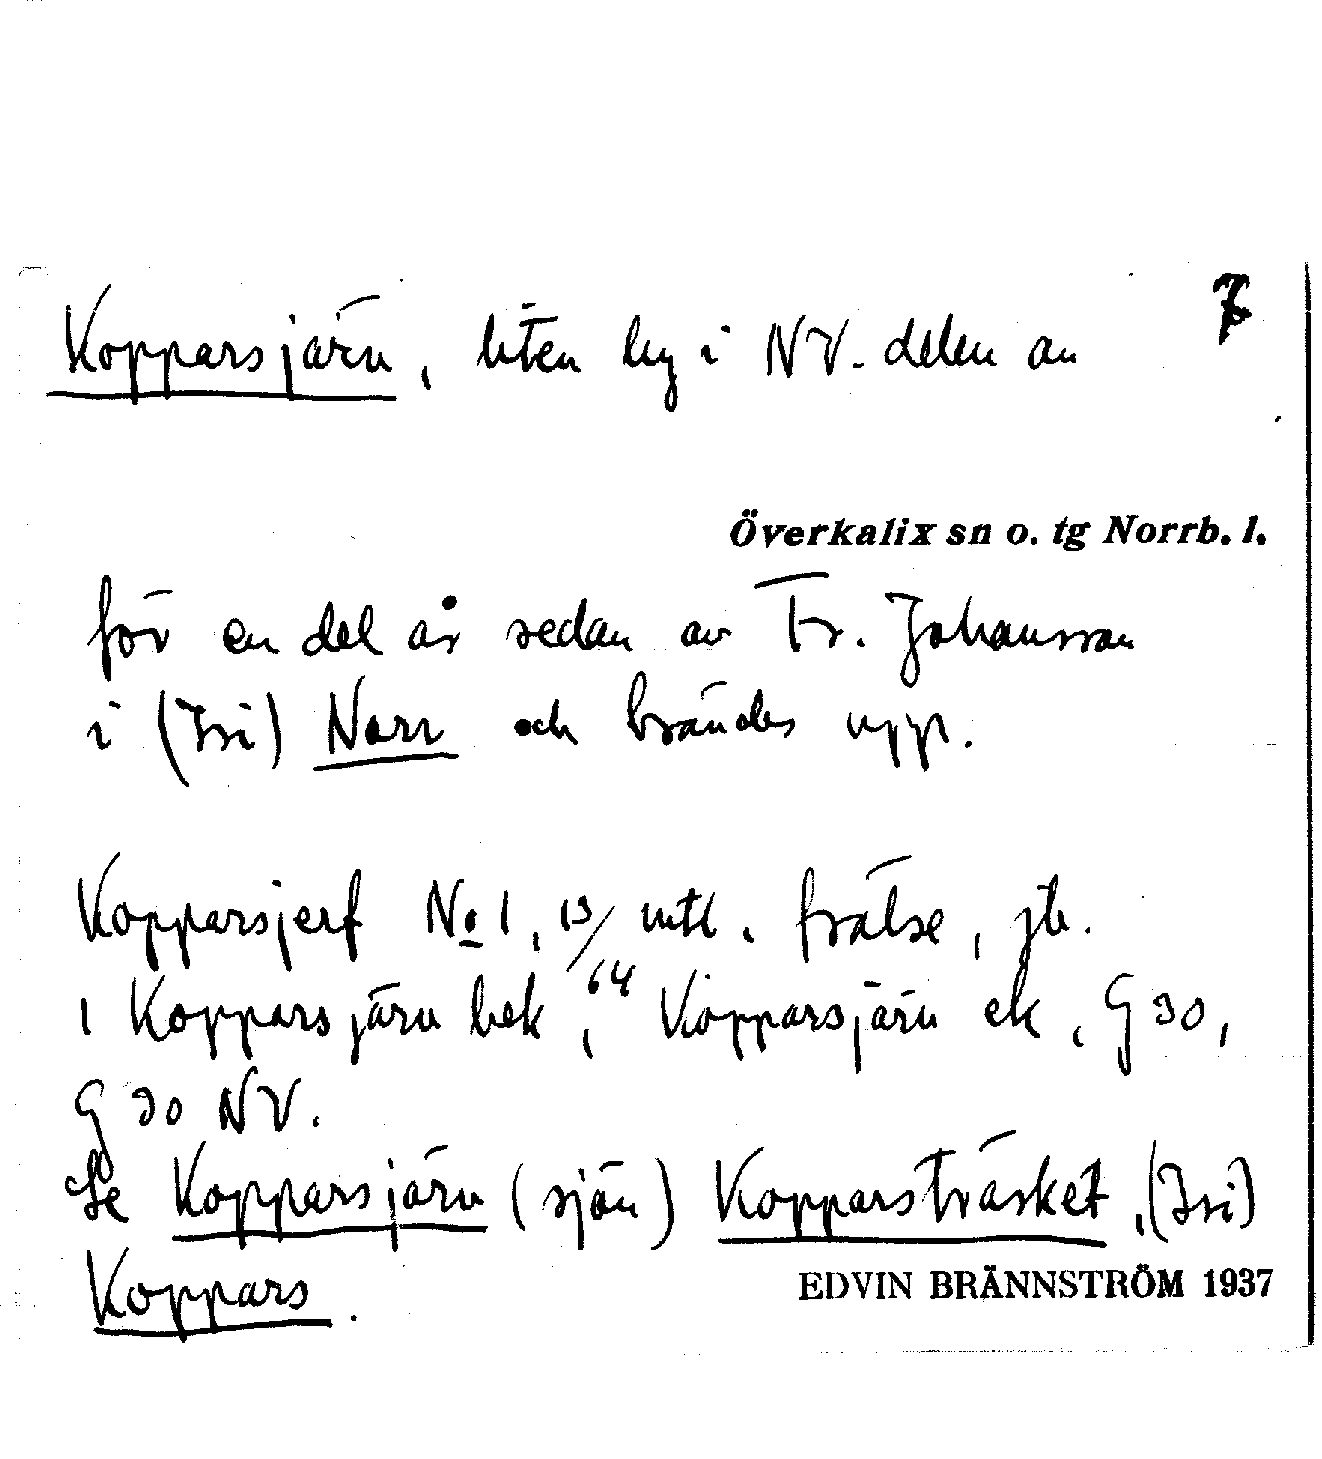 7
Kopparsjärv, liten by i NV. delen av
Överkalix sn o. tg Norrb. l.
för en del år sedan av Fr. Johansson
i (Isi) Norr och brändes upp.
Kopparsjerf No 1, 13/64 mtl. frälse, jb.
1 Kopparsjärv bek, Kopparsjärv ek, G 30,
G 30 NV.
Se Kopparsjärv (sjön) Kopparsträsket, (Isi)
Koppars.
EDVIN BRÄNNSTRÖM 1937